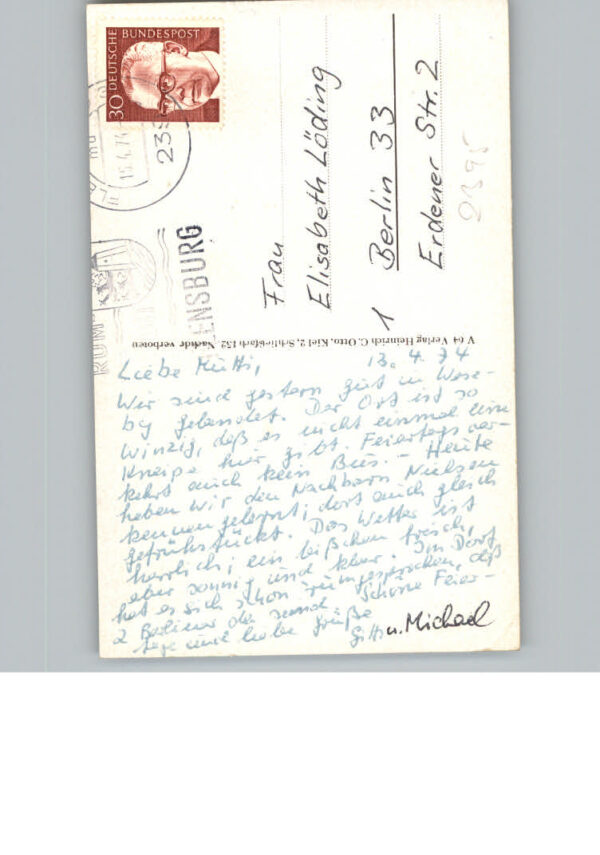 30 DEUTSCHE BUNDESPOST
15.4.74
239
ENSBURG
RUM
Frau
Elisabeth Löding
1 Berlin 33
Erdener Str. 2
2395
V 64 Verlag Heinrich C. Otto, Kiel 2, Schließfach 132 Nachdr. verboten
13. 4. 74
Liebe Mutti,
Wir sind gestern gut in Wese-
by gelandet. Der Ort ist so
winzig, daß es nicht einmal eine
Kneipe hier gibt. Feiertags ver-
kehrt auch kein Bus. - Heute
haben wir den Nachbarn Nielsen
kennen gelernt; dort auch gleich
gefrühstückt. Das Wetter ist
herrlich; ein bißchen frisch,
aber sonnig und klar. Im Dorf
hat es sich schon rumgesprochen, daß
2 Berliner da sind. Schöne Feier-
tage und liebe Grüße
u. Michael